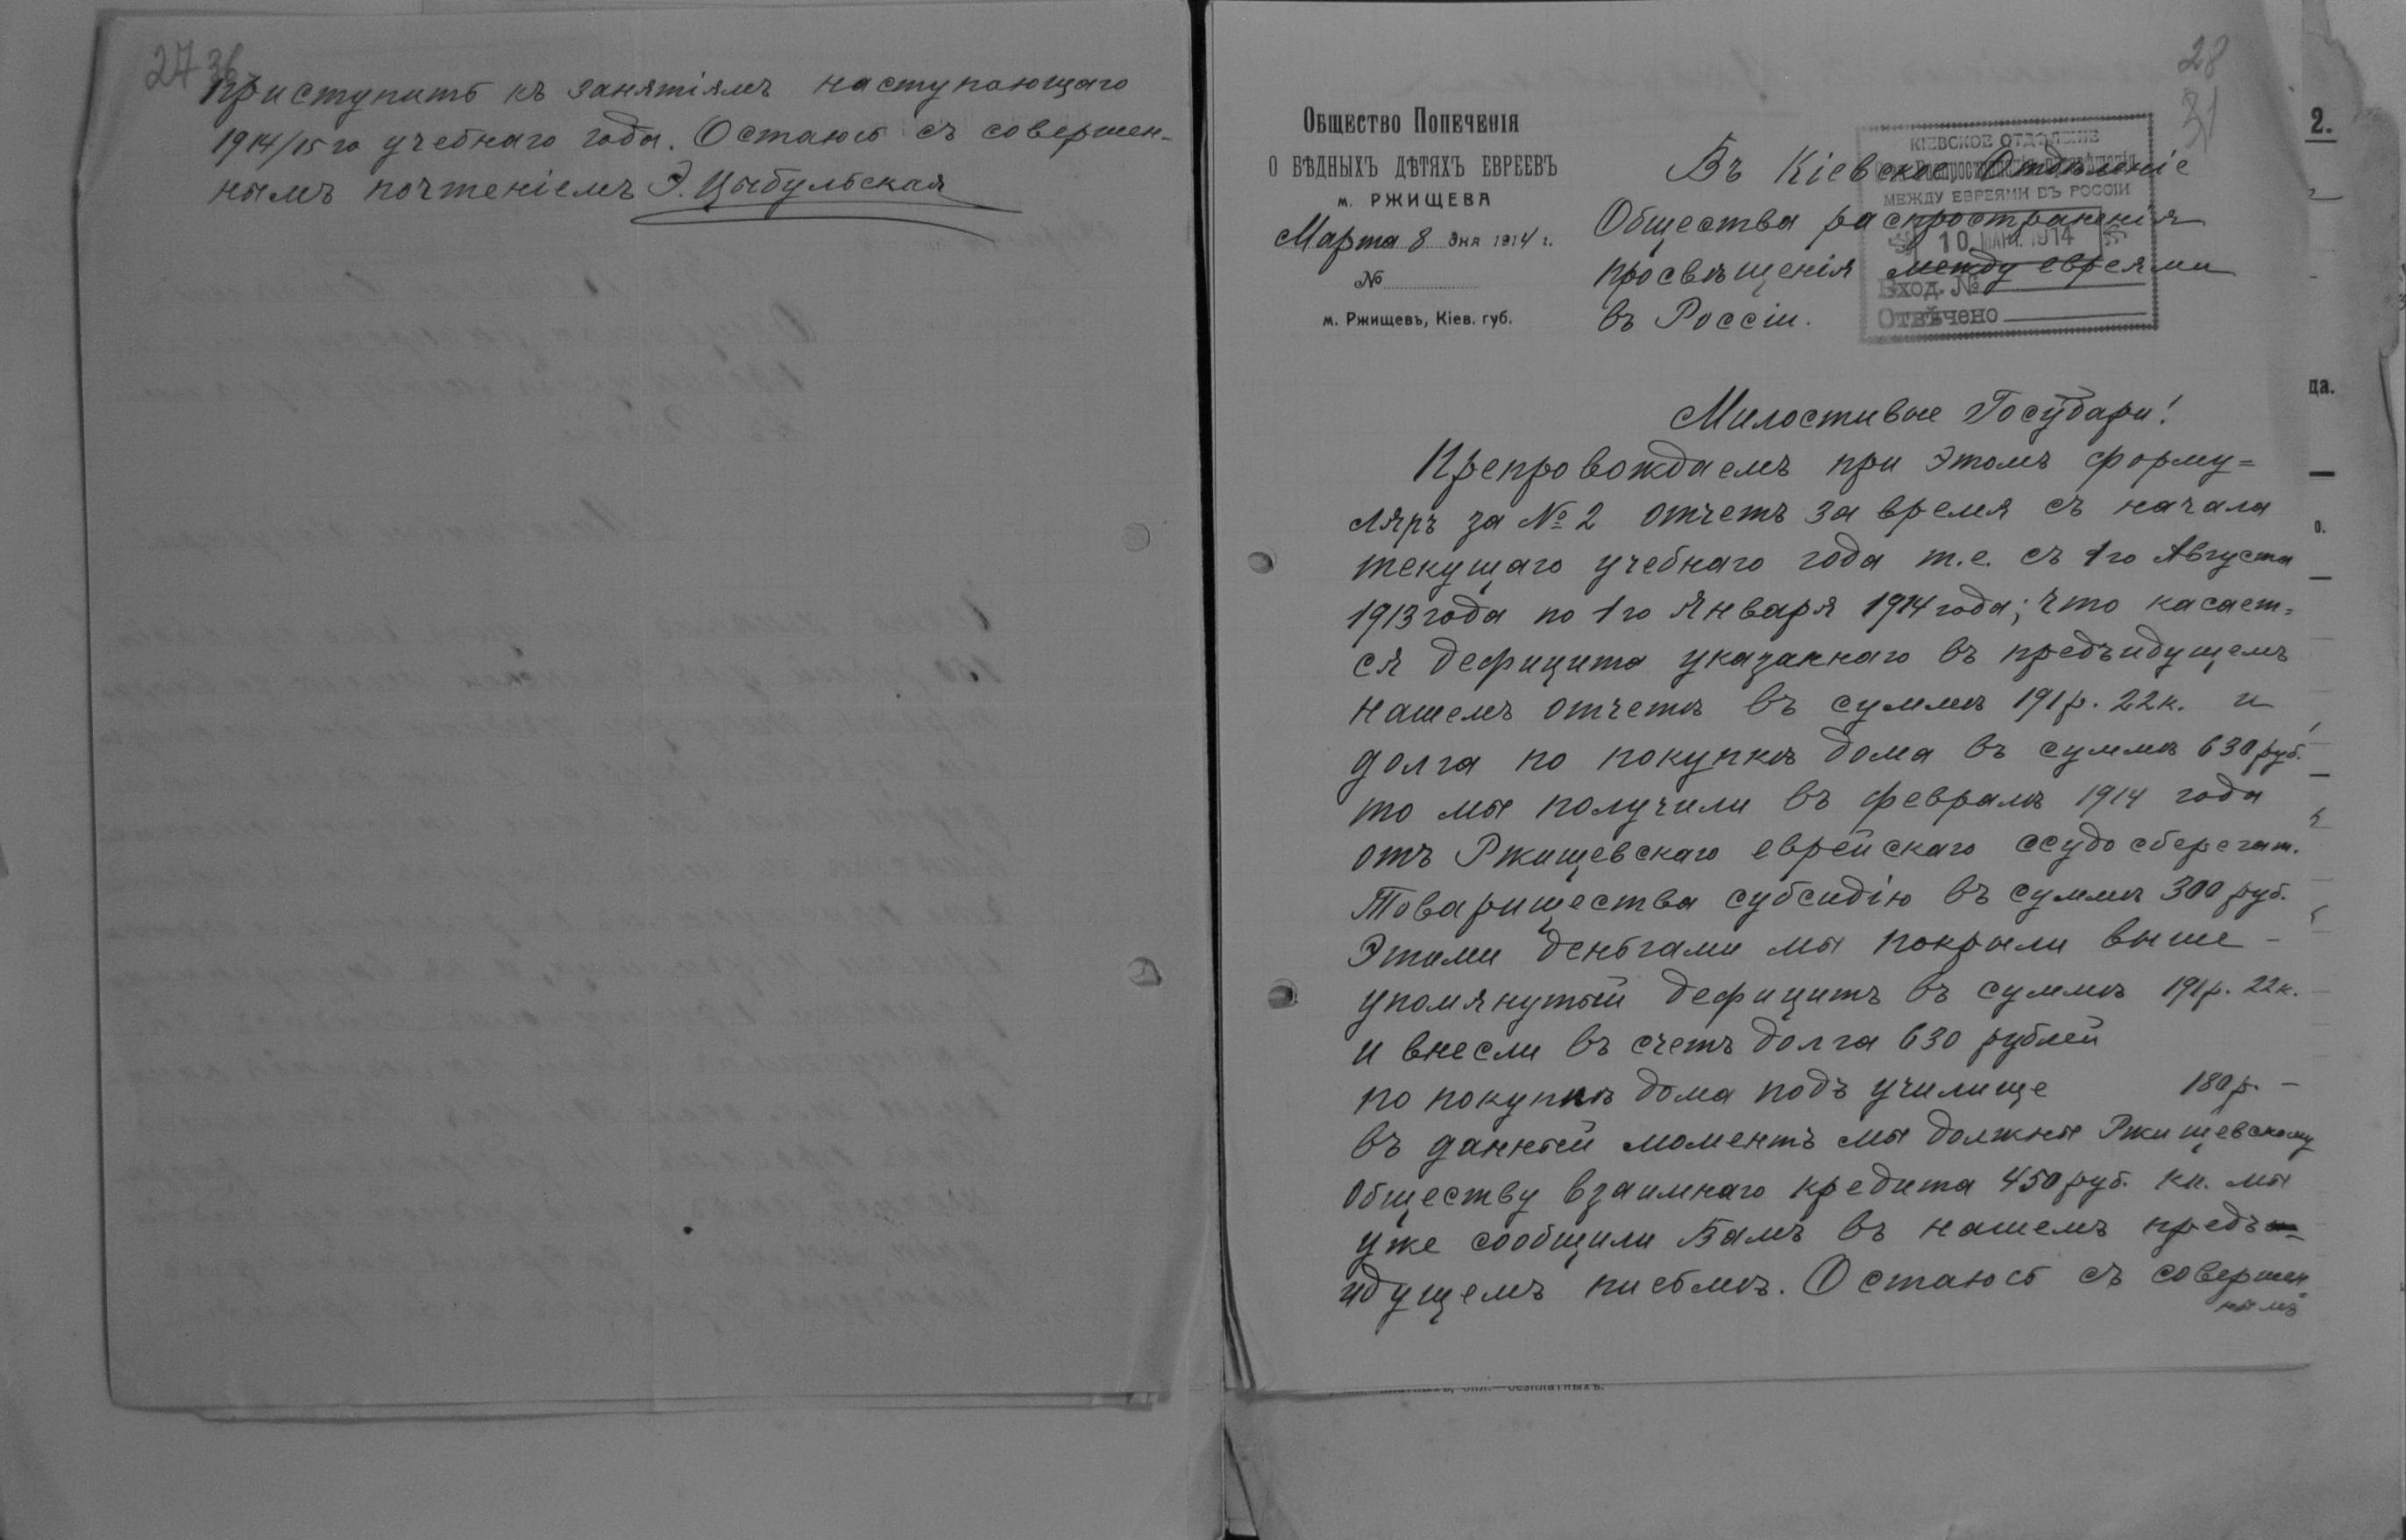 27 36
приступить къ занятіямъ наступающаго
1914/15 го учебнаго года. Остаюсь съ совершен-
нымъ почтеніемъ Э. Цыбульская
28
31
Общество Попеченія
О БѢДНЫХЪ ДѢТЯХЪ ЕВРЕЕВЪ
м. РЖИЩЕВА
Марта 8 дня 1914 г.
№
м. Ржищевъ, Кіев. губ.
КІЕВСКОЕ ОТДѢЛЕНІЕ
МЕЖДУ ЕВРЕЯМИ ВЪ РОССІИ
10 МАРТ. 1914
Вход. №
Отвѣчено
Въ Кіевское Отдѣленіе
Общества распространенія
просвѣщенія между евреями
въ Россіи.
Милостивые Государи!
Препровождаемъ при этомъ форму=
ляръ за № 2 отчетъ за время съ начала
текущаго учебнаго года т.е. съ 1го Августа
1913 года по 1го Января 1914 года; что касает=
ся дефицита указаннаго въ предъидущемъ
нашемъ отчетѣ въ суммѣ 191 р. 22 к. и
долга по покупкѣ дома въ суммѣ 630 руб.
то мы получили въ февралѣ 1914 года
отъ Ржищевскаго еврейскаго ссудо сберегат.
Товарищества субсидію въ суммѣ 300 руб.
Этими деньгами мы покрыли выше-
упомянутый дефицитъ въ суммѣ 191 р. 22 к.
и внесли въ счетъ долга 630 рублей
по покупкѣ дома подъ училище 180 р. –
въ данный моментъ мы должны Ржищевскому
Обществу взаимнаго кредита 450 руб. кк. мы
уже сообщили Вамъ въ нашемъ предъ=
идущемъ письмѣ. Остаюсь съ совершен
нымъ
2.
ца.
о.
безплатныхъ.